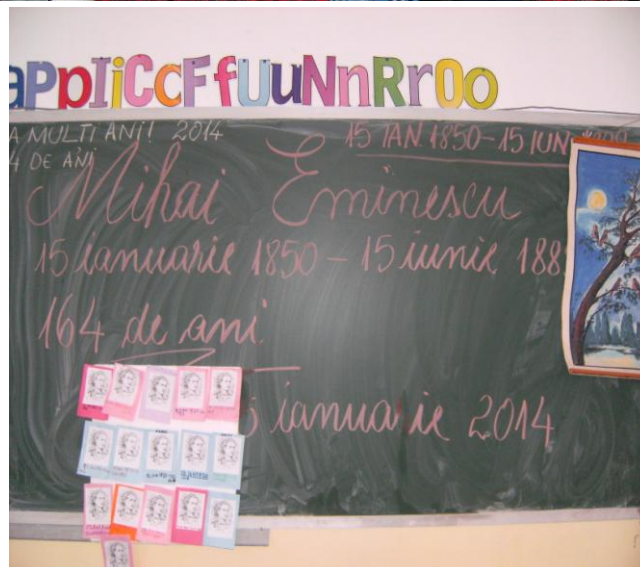 aPpIiCcFfUuNnRrOo
A MULTI ANI! 2014
4 DE ANI
15 IAN. 1850-15 IUN
Mihai Eminescu
15 ianuarie 1850 - 15 iunie 188
164 de ani
ianuarie 2014